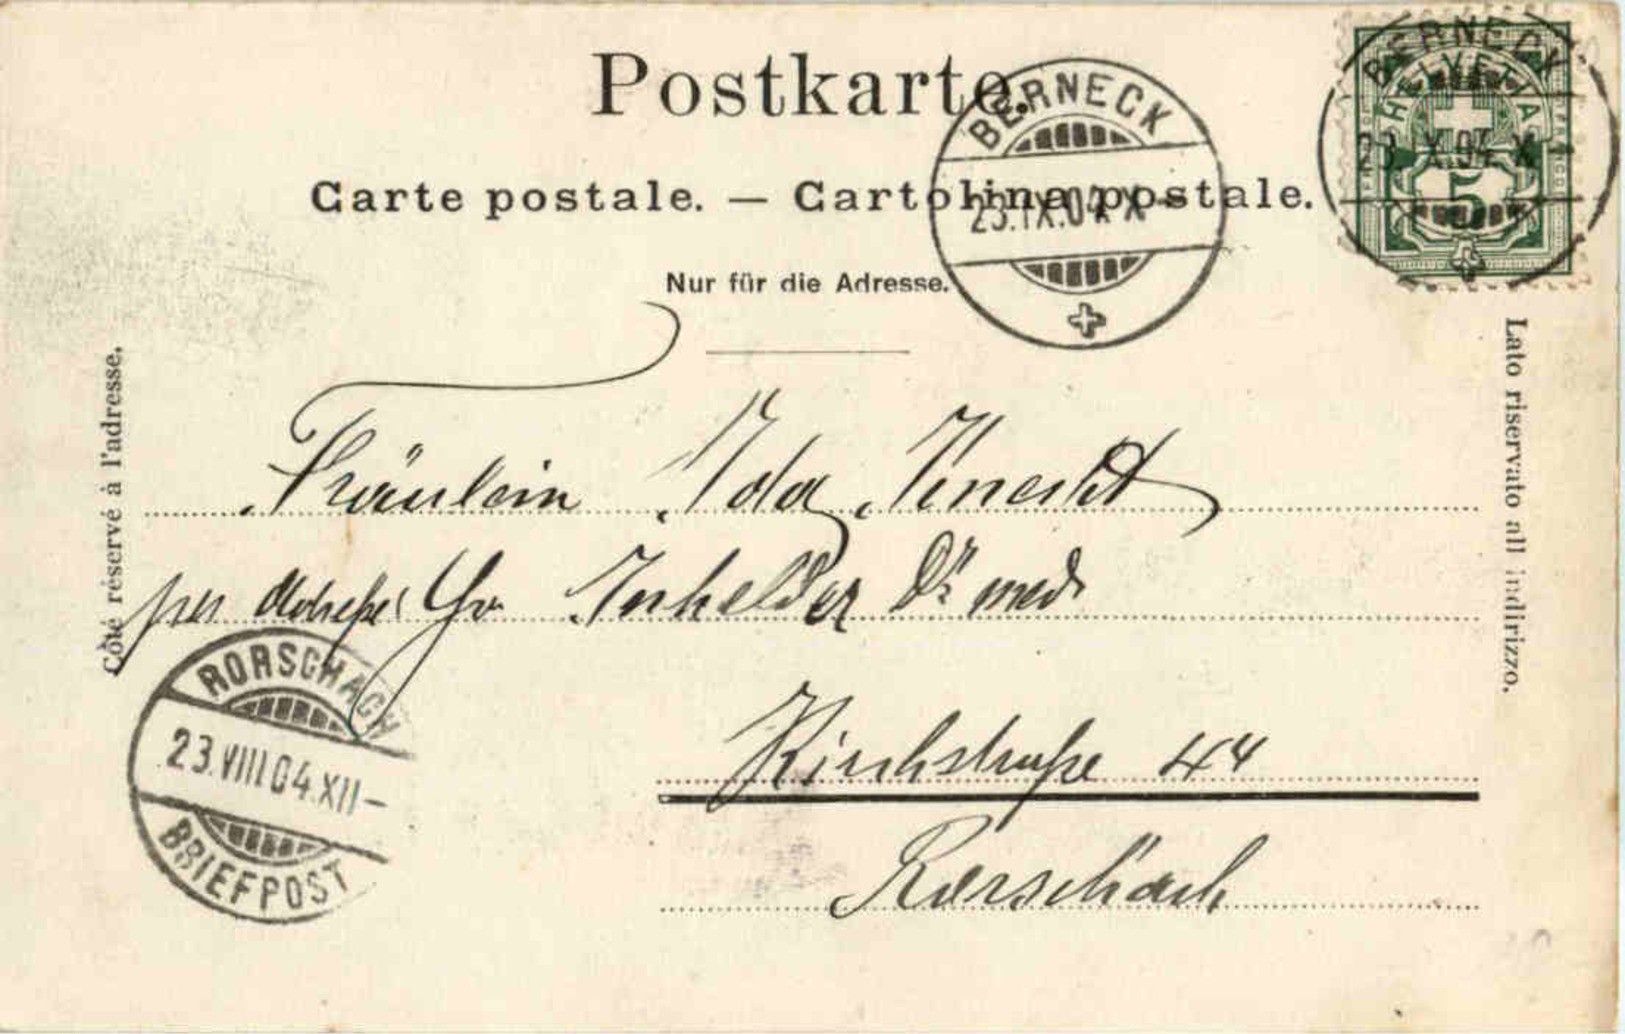 Postkarte.
Carte postale. — Cartolina postale.
Nur für die Adresse.
BERNECK
23.IX.04.X-
BERNECK
23. X
HELVETIA
5
Côté réservé à l'adresse.
Lato riservato all indirizzo.
Fräulein Ida Knecht
per Adresse Hr. Inhelder Dr med
Kirchstraße 44
Rorschach
RORSCHACH
23.VIII.04.XII-
BRIEFPOST